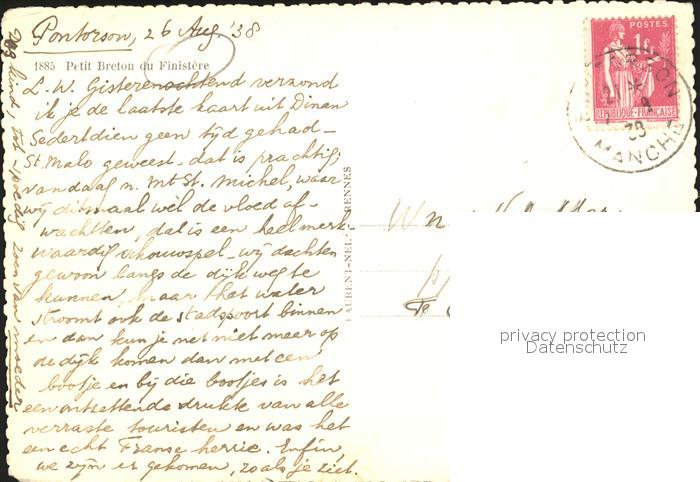 Pontorson, 26 Aug '38
1885 Petit Breton du Finistère
L. W. Gisterenochtend verzond
ik je de laatste kaart uit Dinan
Sedertdien geen tijd gehad –
St. Malo geweest – dat is prachtig,
vandaag n. Mt St. Michel, waar
wij ditmaal wèl de vloed af-
wachtten, dat is een heel merk-
waardig schouwspel – wij dachten
gewoon langs de dijk weg te
kunnen, maar het water
stroomt ook de stadspoort binnen
en dan kun je net niet meer op
de dijk komen dan met een
bootje en bij die bootjes is het
een ontzettende drukte van alle
verraste touristen en was het
een echt Franse herrie. Enfin,
we zijn er gekomen, zoals je ziet.
Dag kind, tot spoedig zoen van moeder
LAURENT-NEL, RENNES
POSTES
1F
REPUBLIQUE FRANÇAISE
MANCHE
38
privacy protection
Datenschutz